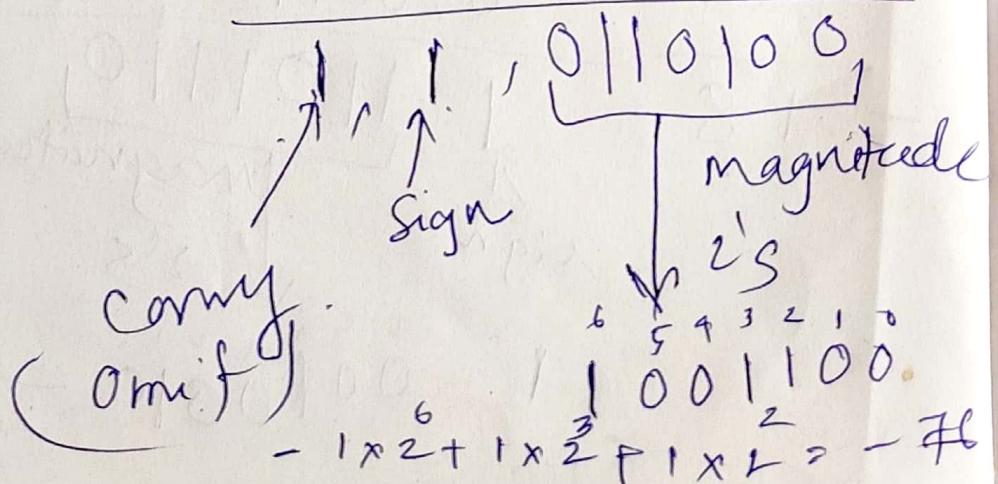 1, 1, 0110100
Sign
magnitude
2's
carry
(omit)
6 5 4 3 2 1 0
1 0 0 1 1 0 0
- 1 x 2^6 + 1 x 2^3 + 1 x 2^2 = - 76